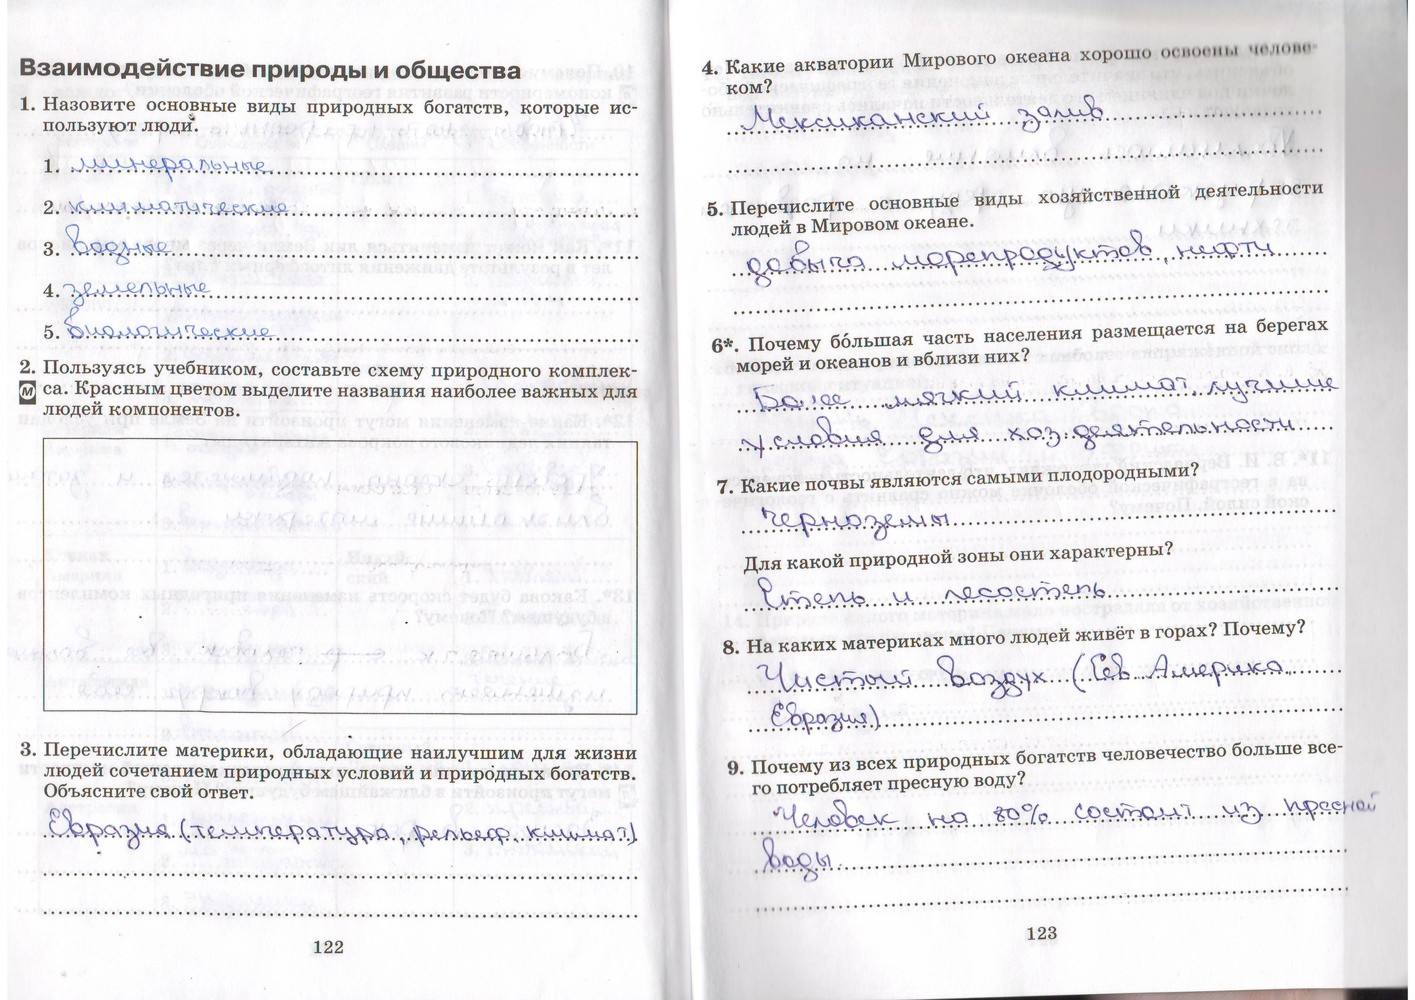 Взаимодействие природы и общества
1. Назовите основные виды природных богатств, которые ис-
пользуют люди.
1. минеральные
2. климатические
3. водные
4. земельные
5. биологические
2. Пользуясь учебником, составьте схему природного комплек-
м са. Красным цветом выделите названия наиболее важных для
людей компонентов.
3. Перечислите материки, обладающие наилучшим для жизни
людей сочетанием природных условий и природных богатств.
Объясните свой ответ.
Евразия (температура, рельеф, климат)
122
4. Какие акватории Мирового океана хорошо освоены челове-
ком?
Мексиканский залив
5. Перечислите основные виды хозяйственной деятельности
людей в Мировом океане.
добыча морепродуктов, нефти
6*. Почему бо́льшая часть населения размещается на берегах
морей и океанов и вблизи них?
Более мягкий климат, лучшие
условия для хоз. деятельности
7. Какие почвы являются самыми плодородными?
Чернозёмы
Для какой природной зоны они характерны?
Степь и лесостепь
8. На каких материках много людей живёт в горах? Почему?
Чистый воздух (Сев Америка,
Евразия)
9. Почему из всех природных богатств человечество больше все-
го потребляет пресную воду?
Человек на 80% состоит из пресной
воды.
123